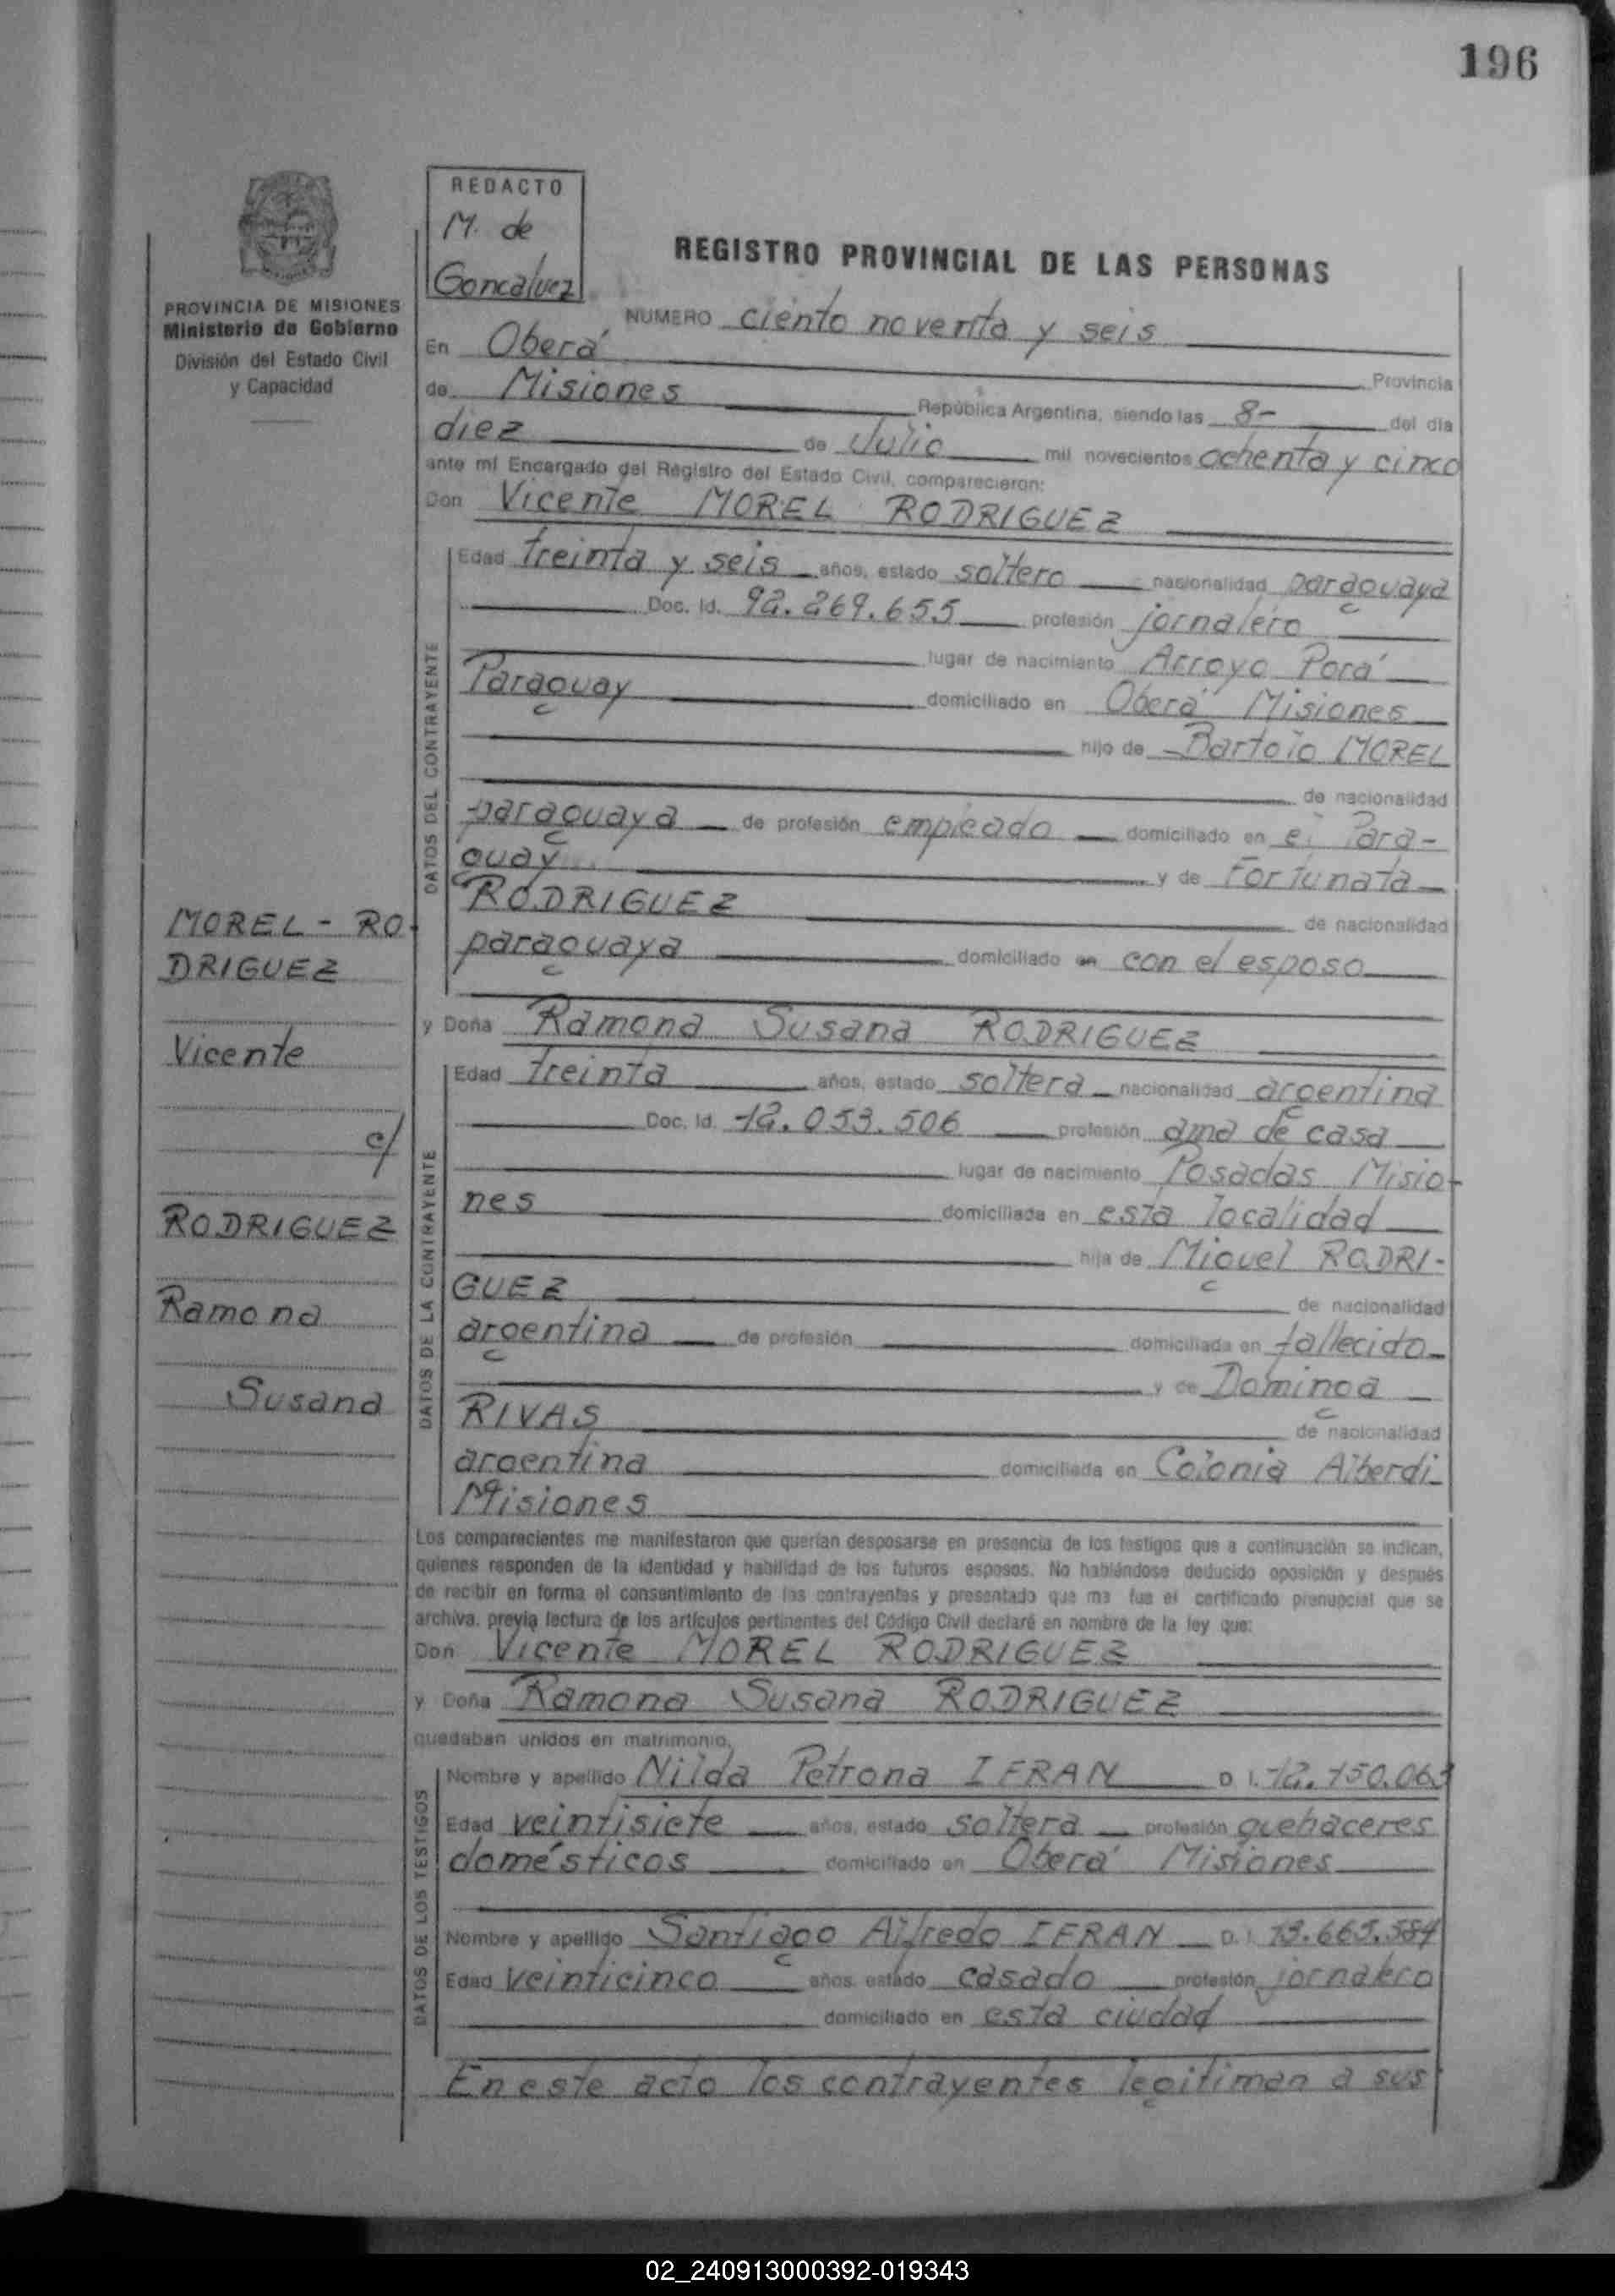 196
REDACTO
M. de
Goncalvez
PROVINCIA DE MISIONES
Ministerio de Gobierno
División del Estado Civil
y Capacidad
REGISTRO PROVINCIAL DE LAS PERSONAS
NUMERO ciento noventa y seis
En Oberá Provincia
de Misiones República Argentina, siendo las 8- del día
diez de Julio mil novecientos ochenta y cinco
ante mí Encargado del Registro del Estado Civil, comparecieron:
Don Vicente MOREL RODRIGUEZ
DATOS DEL CONTRAYENTE
Edad treinta y seis años, estado soltero nacionalidad paraguaya
Doc. Id. 92.269.655 profesión jornalero
lugar de nacimiento Arroyo Porá
Paraguay domiciliado en Oberá Misiones
hijo de Bartolo MOREL
de nacionalidad
paraguaya de profesión empleado domiciliado en el Para-
guay y de Fortunata
RODRIGUEZ de nacionalidad
paraguaya domiciliado en con el esposo
y Doña Ramona Susana RODRIGUEZ
DATOS DE LA CONTRAYENTE
Edad treinta años, estado soltera nacionalidad argentina
Doc. Id. 12.053.506 profesión ama de casa
lugar de nacimiento Posadas Misio-
nes domiciliada en esta localidad
hija de Miguel RODRI-
GUEZ de nacionalidad
argentina de profesión domiciliada en fallecido
y de Dominga
RIVAS de nacionalidad
argentina domiciliada en Colonia Alberdi
Misiones
MOREL - RO-
DRIGUEZ
Vicente
c/
RODRIGUEZ
Ramona
Susana
Los comparecientes me manifestaron que querían desposarse en presencia de los testigos que a continuación se indican,
quienes responden de la identidad y habilidad de los futuros esposos. No habiéndose deducido oposición y después
de recibir en forma el consentimiento de los contrayentes y presentado que me fue el certificado prenupcial que se
archiva, previa lectura de los artículos pertinentes del Código Civil declaré en nombre de la ley que:
Don Vicente MOREL RODRIGUEZ
y Doña Ramona Susana RODRIGUEZ
quedaban unidos en matrimonio.
DATOS DE LOS TESTIGOS
Nombre y apellido Nilda Petrona IFRAN D. I. 12.150.063
Edad veintisiete años, estado soltera profesión quehaceres
domésticos domiciliado en Oberá Misiones
Nombre y apellido Santiago Alfredo IFRAN D. I. 13.665.584
Edad veinticinco años, estado casado profesión jornalero
domiciliado en esta ciudad
En este acto los contrayentes legitiman a sus
02_240913000392-019343